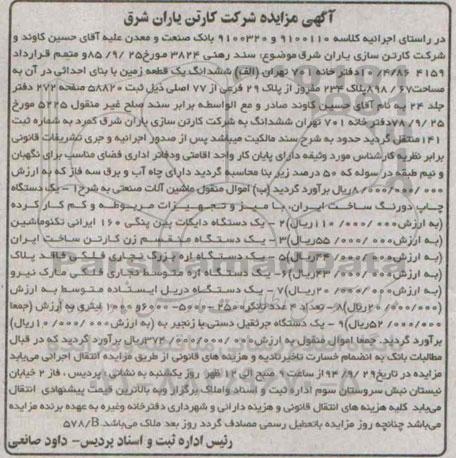 آگهی مزایده شرکت کارتن یاران شرق
در راستای اجرائیه کلاسه ۹۱۰۰۱۱۰ و ۹۱۰۰۳۲۰ بانک صنعت و معدن علیه آقای حسین کاوند و
شرکت کارتن سازی یاران شرق موضوع: سند رهنی ۳۸۲۴ مورخ ۸۵/۹/۲۵ و متمم قرارداد
۴۱۵۹ ۱۰/۴/۸۶ دفتر خانه ۷۰۱ تهران (الف) ششدانگ یک قطعه زمین با بنای احداثی در آن به
مساحت ۸۹۸/۶۷ پلاک ۲۳۴ مفروز از پلاک ۲۹ فرعی از ۷۷ اصلی ذیل ثبت ۵۸۸۲۰ صفحه ۲۷۲ دفتر
جلد ۲۴ به نام آقای حسین کاوند صادر و مع الواسطه برابر سند صلح غیر منقول ۵۲۲۵ مورخ
۷۸/۹/۲۵ دفترخانه ۷۰۱ تهران ششدانگ به شرکت کارتن سازی یاران شرق کمرد به شماره ثبت
۱۴۱ منتقل گردید حدود به شرح سند مالکیت میباشد پس از صدور اجرائیه و جری تشریفات قانونی
برابر نظریه کارشناس مورد وثیقه دارای پایان کار واحد اقامتی ودفاتر اداری فضای مناسب برای نگهبان
و نیم طبقه در سوله که ۵۰ درصد زیر بنا محاسبه گردید دارای چاه آب و برق سه فاز که به ارزش
۸/۷۰۰/۰۰۰/۰۰۰ ریال برآورد گردید (ب) اموال منقول ماشین آلات صنعتی به شرح ۱- یک دستگاه
چاپ دورنگ ساخت ایران، با میز و تجهیزات مربوطه و کم کارکرده
(به ارزش ۱۱۰/۰۰۰/۰۰۰ ریال) ۲- یک دستگاه دایکات بین پنگی ۱۶۰ ایرانی تکنوماشین
(به ارزش ۵۵/۰۰۰/۰۰۰ ریال) ۳- یک دستگاه مدقسم زن کارتن ساخت ایران
(به ارزش ۴۴/۰۰۰/۰۰۰ ریال) ۵- یک دستگاه اره بزرگ نجاری فلکی فاقد پلاک
(به ارزش ۴۳/۰۰۰/۰۰۰ ریال) ۶- یک دستگاه اره متوسط نجاری فلکی مارک نیرو
(به ارزش ۲۰/۰۰۰/۰۰۰ ریال) ۷- یک دستگاه دریل ایستاده متوسط به ارزش
(۲۰/۰۰۰/۰۰۰ ریال) ۸- تعداد ۴ عدد تانکر ۲۵۰۰-۵۰۰۰-۶۰۰۰ و ۱۰۰۰ لیتری به ارزش (جمعا
۵۲/۰۰۰/۰۰۰ ریال) ۹- یک دستگاه جرثقیل دستی با زنجیر به (به ارزش ۱۰/۰۰۰/۰۰۰ ریال)
برآورد گردید. جمعا اموال منقول به ارزش ۳۷۴/۰۰۰/۰۰۰ ریال برآورد گردید که در قبال
مطالبات بانک به انضمام خسارت تاخیرتادیه و هزینه های قانونی از طریق مزایده انتقال اجرائی می‌یابد
مزایده در تاریخ ۹۴/۹/۲۹ از ساعت ۹ صبح الی ۱۲ ظهر روز یکشنبه به نشانی: پردیس، فاز ۲ خیابان
نیستان نبش سروستان سوم اداره ثبت و اسناد واملاک برگزار وبه بالاترین قیمت پیشنهادی انتقال
می‌یابد کلیه هزینه های انتقال قانونی و هزینه دارائی و شهرداری دفترخانه وغیره به عهده برنده مزایده
می‌باشد چنانچه روز مزایده باتعطیل رسمی مصادف گردد روز بعد ملاک می‌باشد. ۵۷۸/B
رئیس اداره ثبت و اسناد پردیس- داود صانعی